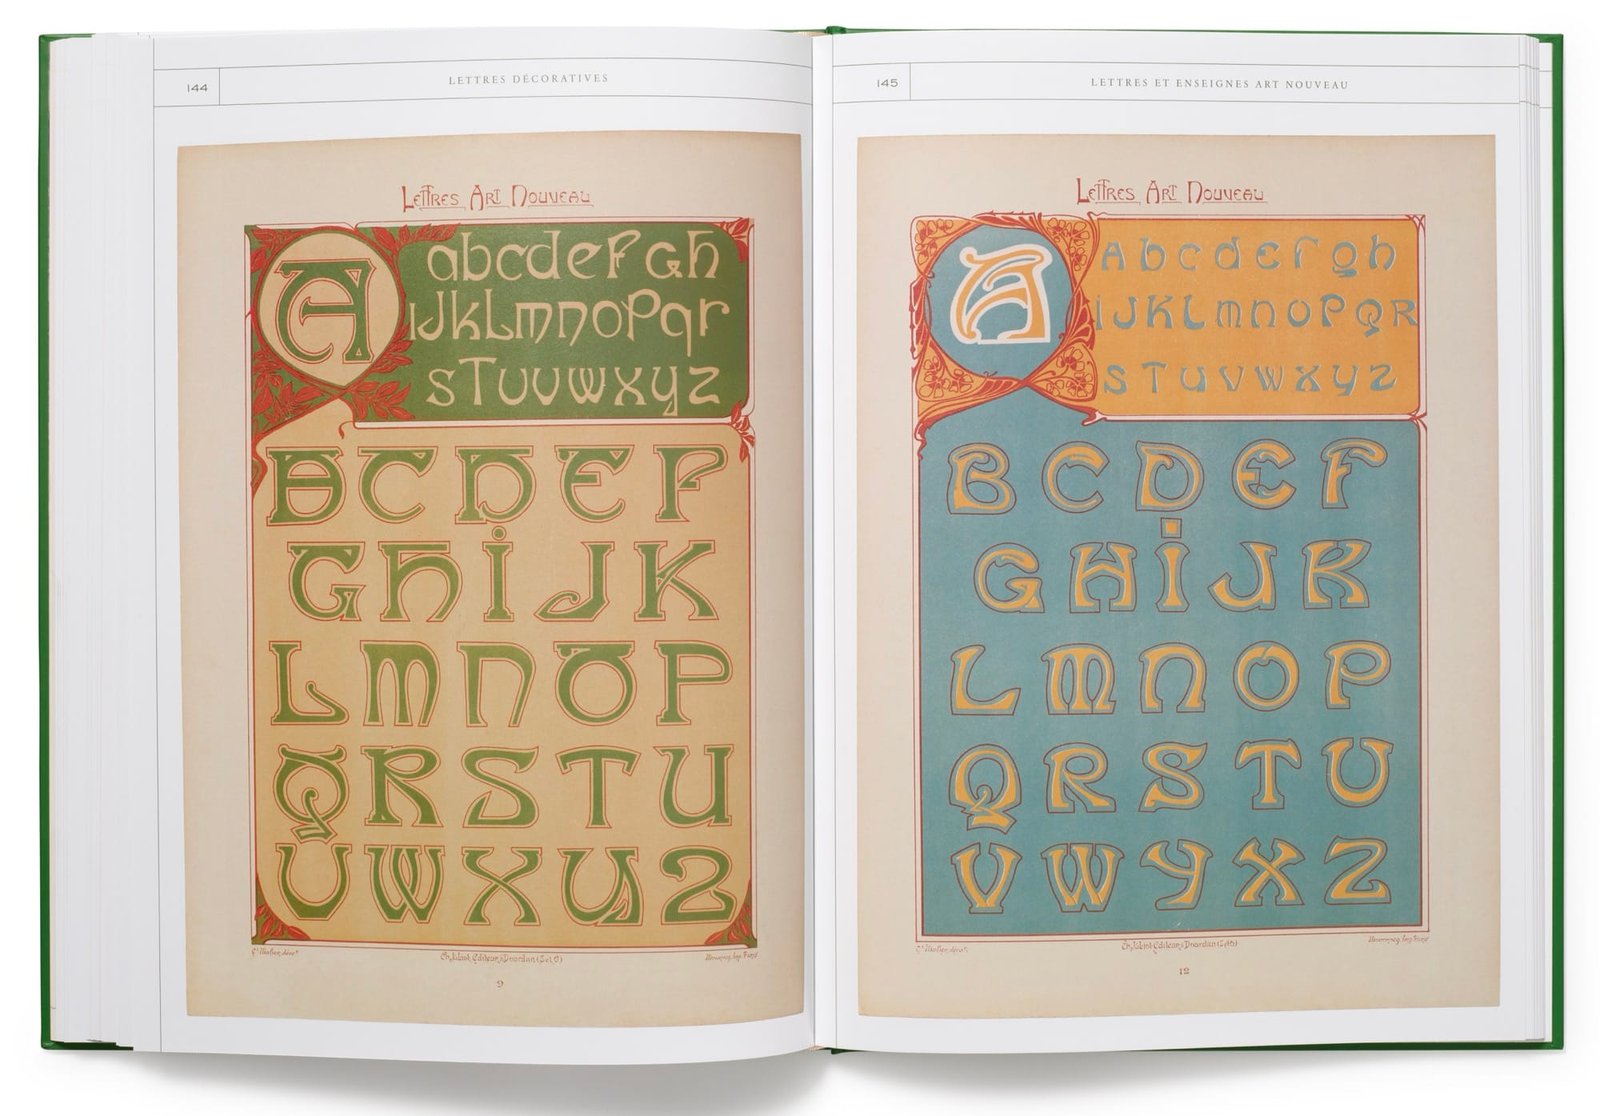 144
LETTRES DÉCORATIVES
Lettres Art Nouveau
A
abcdefgh
ijklmnopqr
stuvwxyz
BCDEF
GHiJK
LMNOP
QRSTU
VWXYZ
9
145
LETTRES ET ENSEIGNES ART NOUVEAU
Lettres Art Nouveau
A
Abcdefgh
iJKLmnoPQR
sTuvwxyz
BCDEF
GHiJK
LMNOP
QRSTU
VWYXZ
12